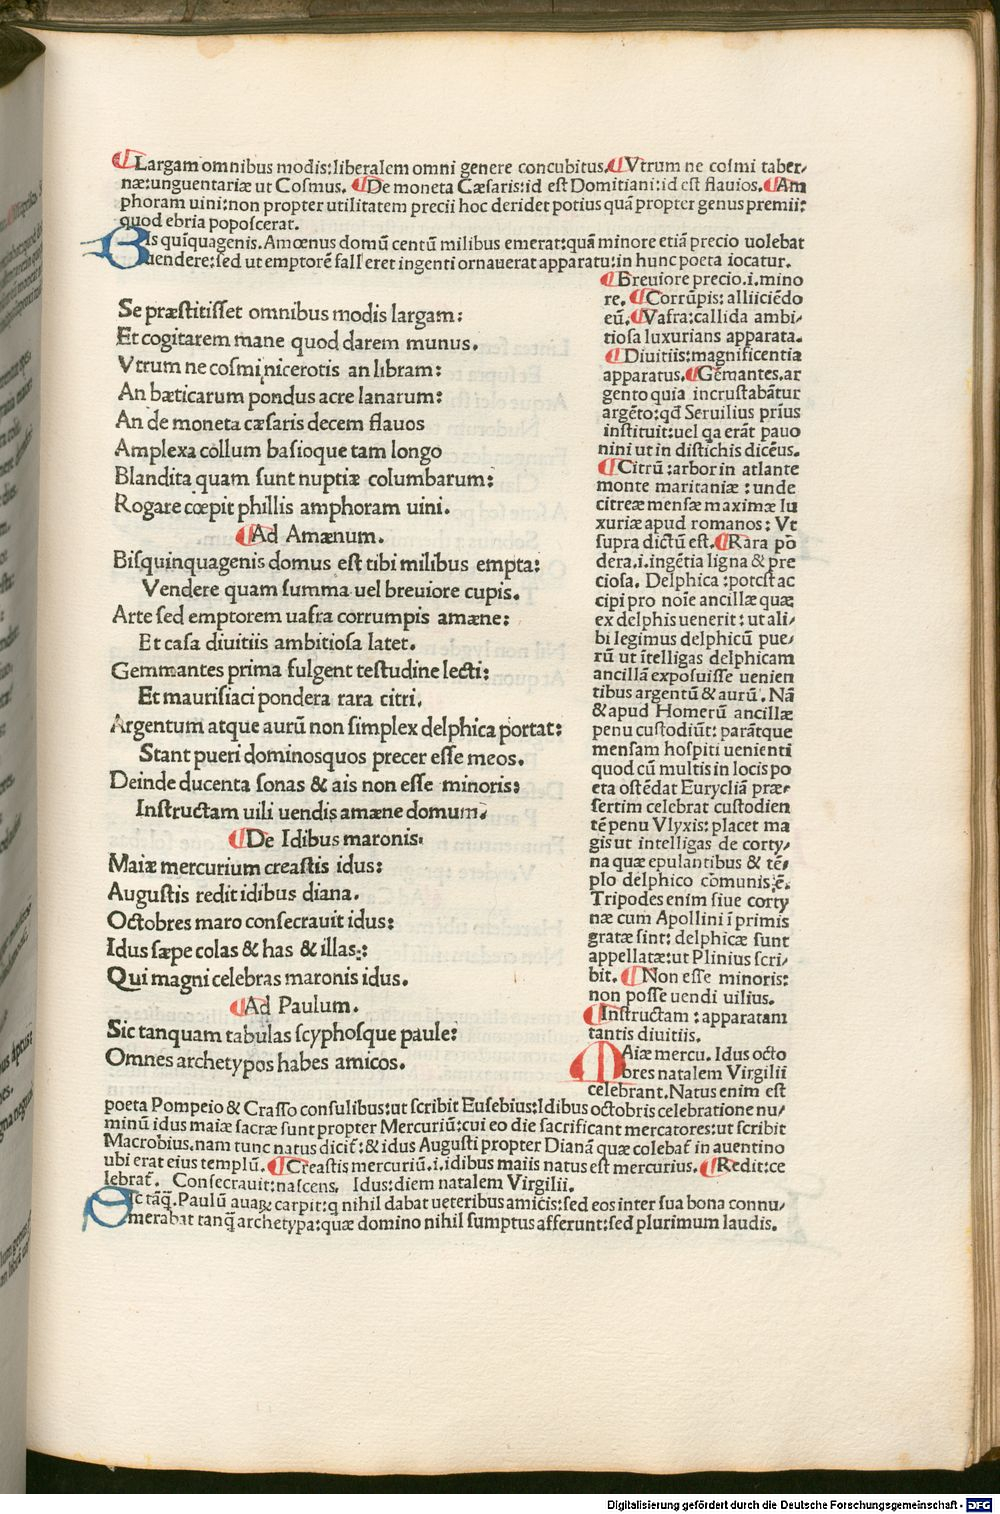 ¶Largam omnibus modis:liberalem omni genere concubitus.¶Vtrum ne cosmi taber-
næ:unguentariæ ut Cosmus. ¶De moneta Cæsaris:id est Domitiani:id est flauios.¶Am
phoram uini:non propter utilitatem precii hoc deridet potius quā propter genus premii:
quod ebria poposcerat.
Bis quīquagenis.Amœnus domū centū milibus emerat:quā minore etiā precio uolebat
uendere:sed ut emptorē falleret ingenti ornauerat apparatu:in hunc poeta iocatur.
Se præstitisset omnibus modis largam:
Et cogitarem mane quod darem munus.
Vtrum ne cosmi,nicerotis an libram:
An bæticarum pondus acre lanarum:
An de moneta cæsaris decem flauos
Amplexa collum basioque tam longo
Blandita quam sunt nuptiæ columbarum:
Rogare cœpit phillis amphoram uini.
¶Ad Amænum.
Bisquinquagenis domus est tibi milibus empta:
Vendere quam summa uel breuiore cupis.
Arte sed emptorem uafra corrumpis amæne:
Et casa diuitiis ambitiosa latet.
Gemmantes prima fulgent testudine lecti:
Et maurisiaci pondera rara citri.
Argentum atque aurū non simplex delphica portat:
Stant pueri dominosquos precer esse meos.
Deinde ducenta sonas & ais non esse minoris:
Instructam uili uendis amæne domum.
¶De Idibus maronis.
Maiæ mercurium creastis idus:
Augustis redit idibus diana.
Octobres maro consecrauit idus:
Idus sæpe colas & has & illas:
Qui magni celebras maronis idus.
¶Ad Paulum.
Sic tanquam tabulas scyphosque paule:
Omnes archetypos habes amicos.
¶Breuiore precio.i.mino
re. ¶Corrūpis: alliiciēdo
eū.¶Vafra:callida ambi-
tiosa luxurians apparata.
¶Diuitiis:magnificentia
apparatus.¶Gēmantes.ar
gento quia incrustabātur
argēto:qđ Seruilius prius
instituit:uel qa erāt pauo
nini ut in distichis dicēus.
¶Citrū:arbor in atlante
monte maritaniæ : unde
citreæ mensæ maximæ lu
xuriæ apud romanos: Vt
supra dictū est.¶Rara pō
dera.i.ingētia ligna & pre
ciosa. Delphica:potest ac
cipi pro noīe ancillæ quæ
ex delphis uenerit: ut ali-
bi legimus delphicū pue-
rū ut ītelligas delphicam
ancillā exposuisse uenien
tibus argentū & aurū. Nā
& apud Homerū ancillæ
penu custodiūt: parātque
mensam hospiti uenienti
quod cū multis in locis po
eta ostēdat Eurycliā præ-
sertim celebrat custodien
tē penu Vlyxis: placet ma
gis ut intelligas de corty-
na quæ epulantibus & tē-
plo delphico cōmunis ē.
Tripodes enim siue corty
næ cum Apollini ī primis
gratæ sint: delphicæ sunt
appellatæ:ut Plinius scri-
bit. ¶Non esse minoris:
non posse uendi uilius.
¶Instructam : apparatam
tantis diuitiis.
MAiæ mercu. Idus octo
bres natalem Virgilii
celebrant.Natus enim est
poeta Pompeio & Crasso consulibus:ut scribit Eusebius:Idibus octobris celebratione nu-
minū idus maiæ sacræ sunt propter Mercuriū:cui eo die sacrificant mercatores:ut scribit
Macrobius.nam tunc natus dicit̄:& idus Augusti propter Dianā quæ colebat̄ in auentino
ubi erat eius templū.¶Creastis mercuriū.i.idibus maiis natus est mercurius.¶Redit:ce
lebrat̄. Consecrauit:nascens. Idus:diem natalem Virgilii.
Sic tāq̄.Paulū auaꝝ carpit:q nihil dabat ueteribus amicis:sed eos inter sua bona connu-
merabat tanq̄ archetypa:quæ domino nihil sumptus afferunt:sed plurimum laudis.
Digitalisierung gefördert durch die Deutsche Forschungsgemeinschaft - DFG